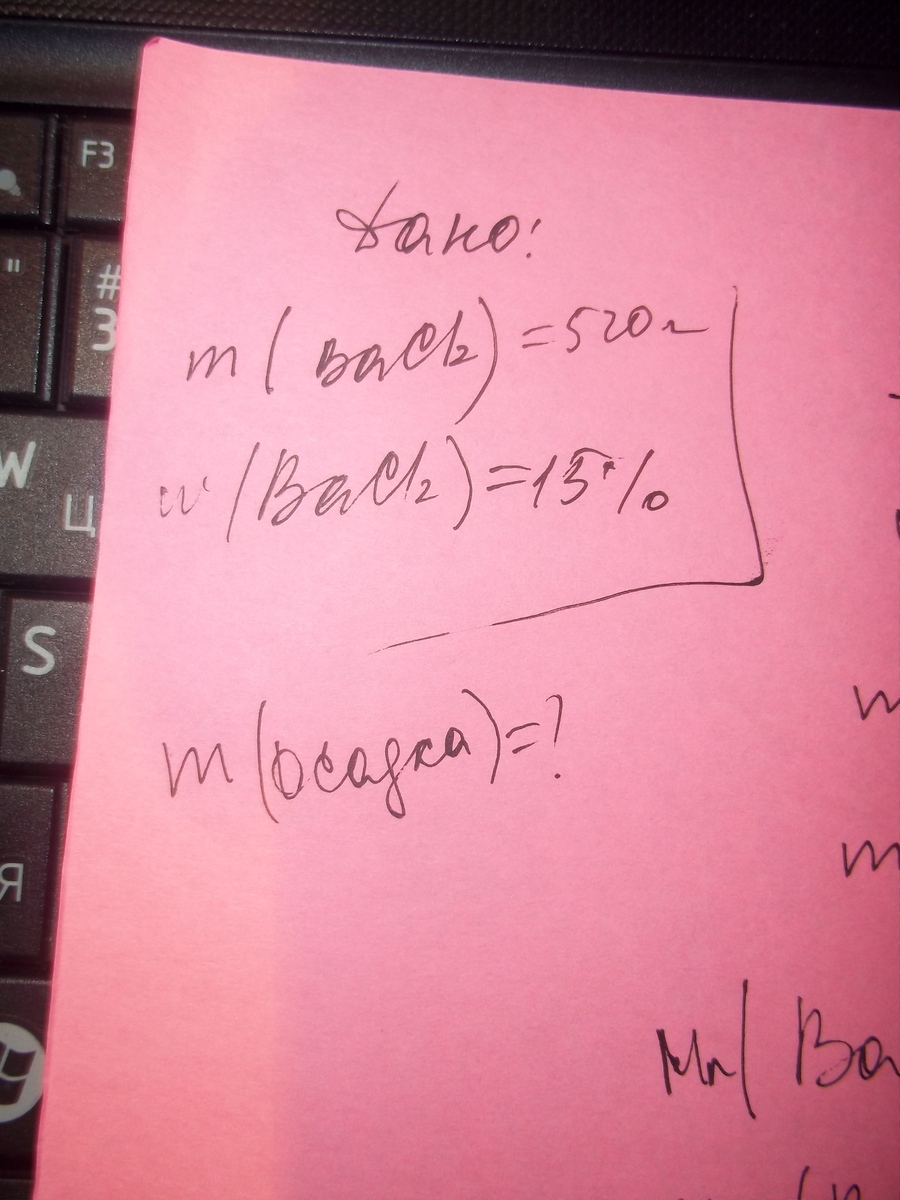 F3
"
#
3
W
Ц
S
Я
Дано:
m(BaCl2)=520г
w(BaCl2)=15%
m(осадка)=?
m
m
Mr(Ba